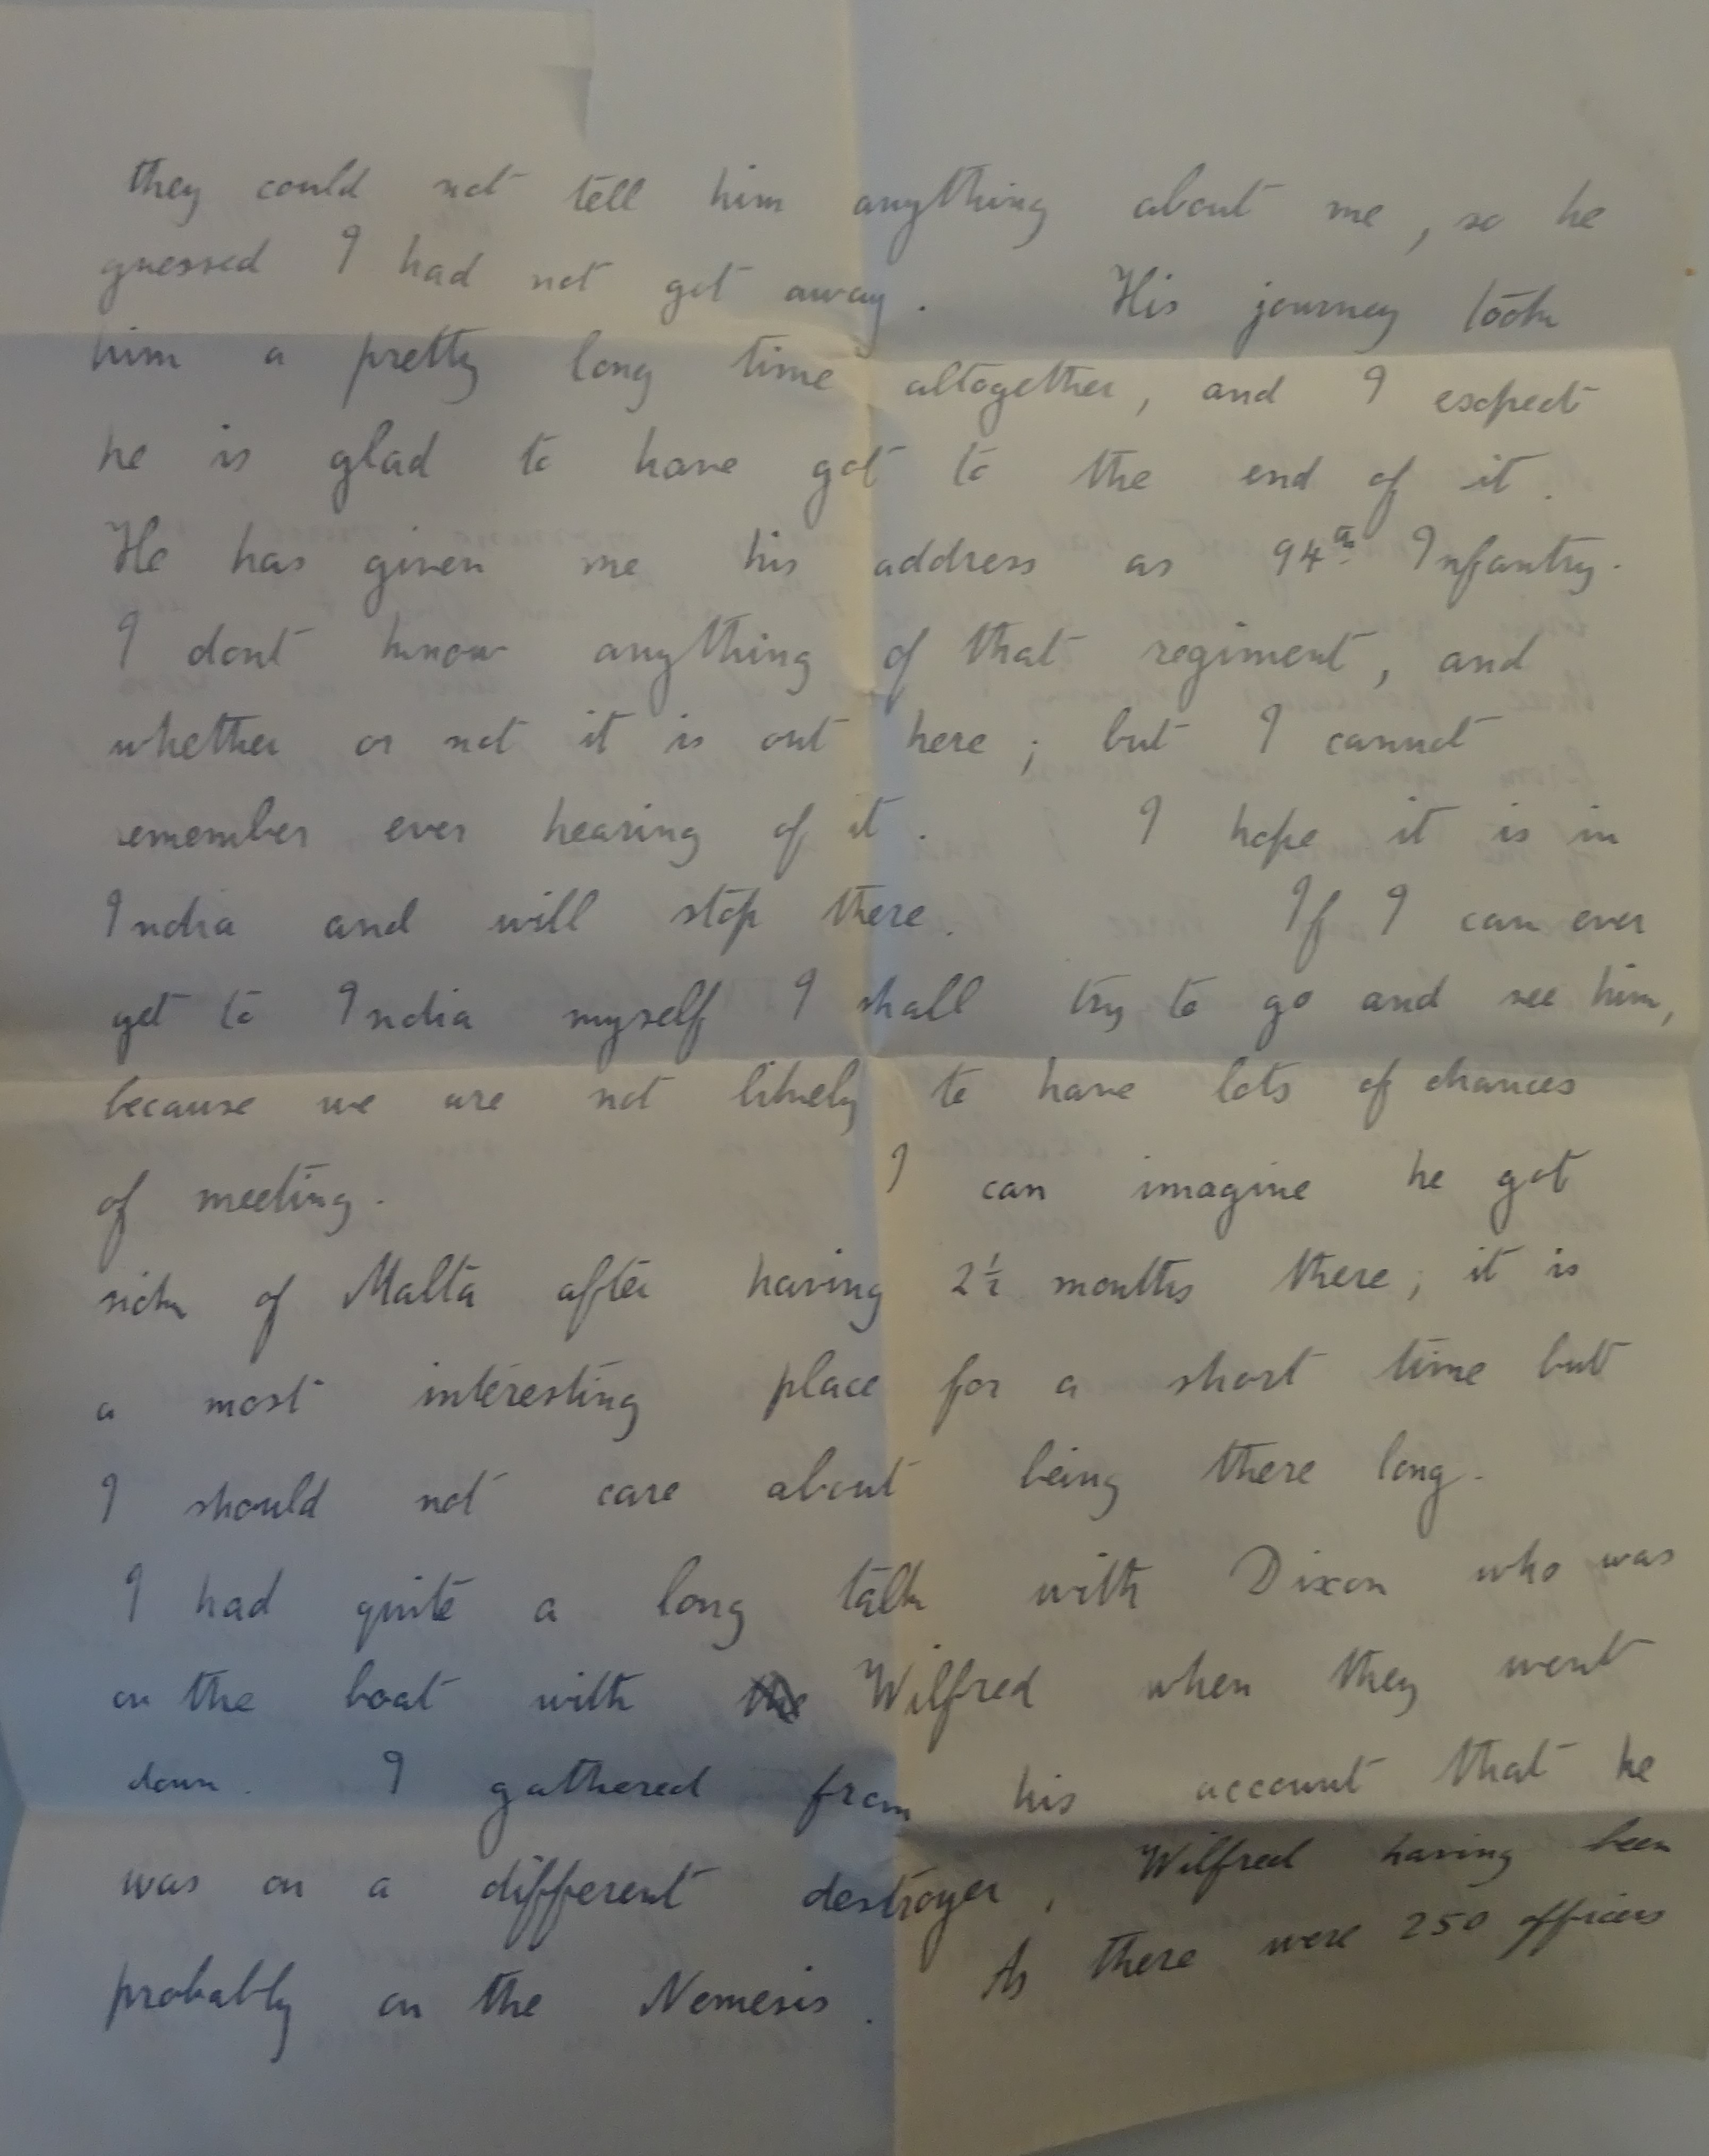 they could not tell him anything about me, so he
guessed I had not got away. His journey took
him a pretty long time altogether, and I expect
he is glad to have got to the end of it.
He has given me his address as 94th Infantry.
I dont know anything of that regiment, and
whether or not it is out here; but I cannot
remember ever hearing of it. I hope it is in
India and will stop there. If I can ever
get to India myself I shall try to go and see him,
because we are not likely to have lots of chances
of meeting. I can imagine he got
sick of Malta after having 2½ months there; it is
a most interesting place for a short time but
I should not care about being there long.
I had quite a long talk with Dixon who was
on the boat with Wilfred when they went
down. I gathered from his account that he
was on a different destroyer, Wilfred having been
probably on the Nemesis. As there were 250 officers